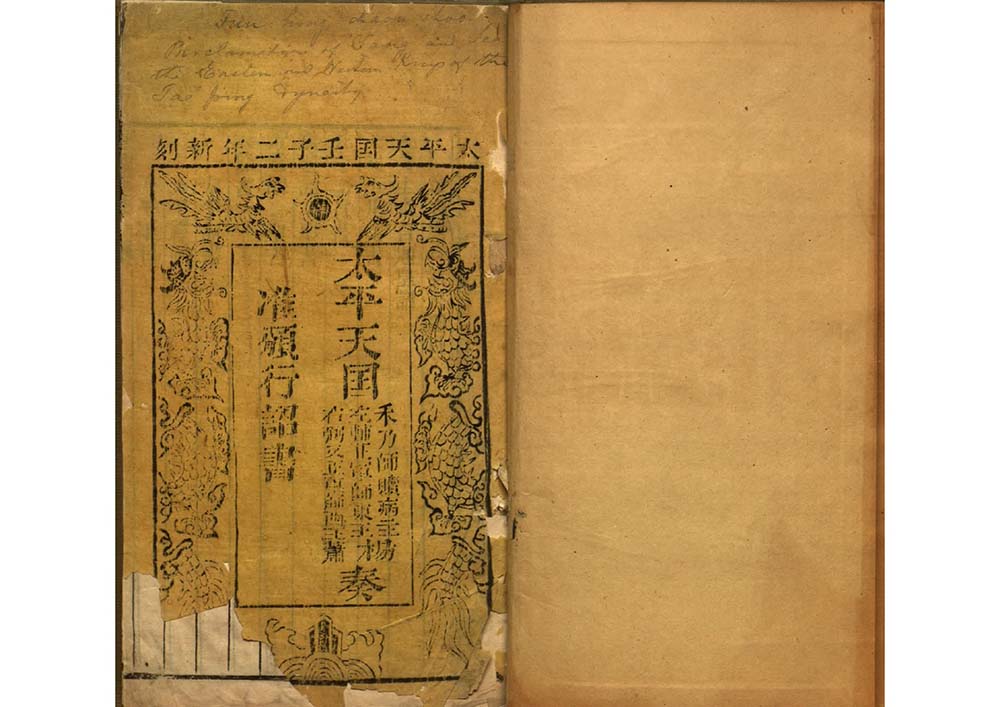 Fun hing chaou shoo
Proclamation of Yang and
the Eastern and Western Kings of the
Tae ping Dynasty
太平天囯壬子二年新刻
太平天囯
禾乃師贖病主
左輔正軍師東王
楊
右弼又正軍師西王蕭
奏
准頒行詔書